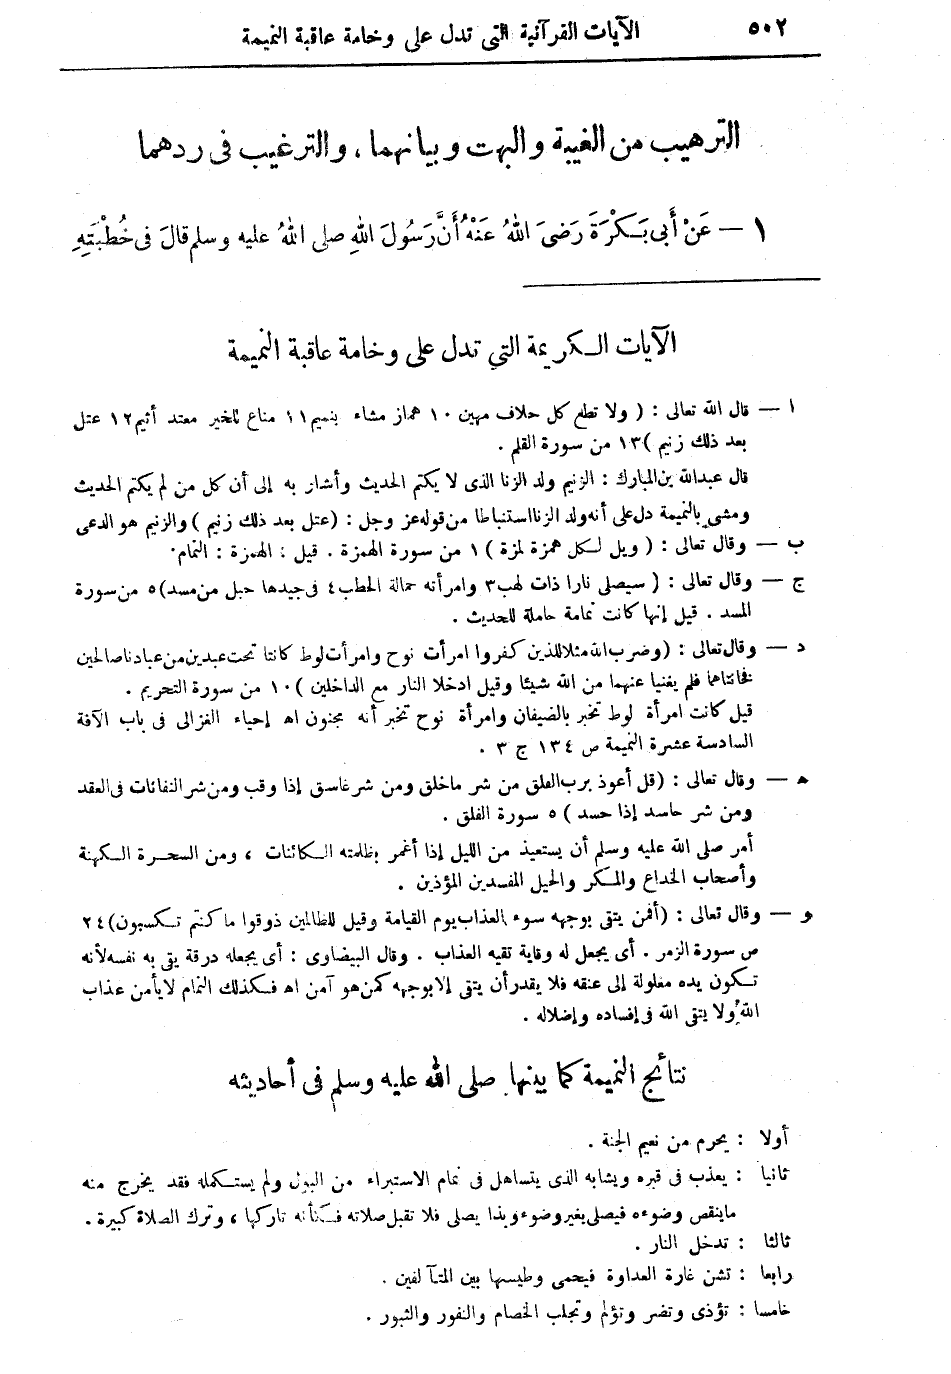 ٥٠٢ الآيات القرآنية التى تدل على وخامة عاقبة النميمة
الترهيب من الغيبة والبهت وبيانهما، والترغيب فى ردهما
١ — عَنْ أَبى بَكْرَةَ رَضىَ اللهُ عَنْهُ أَنَّ رَسُولَ اللهِ صلى اللهُ عليه وسلم قالَ فى خُطْبَتِهِ
الآيات الكريمة التي تدل على وخامة عاقبة النميمة
ا — قال الله تعالى : ( ولا تطع كل حلاف مهين ١٠ هماز مشاء بنميم ١١ مناع للخير معتد أثيم ١٢ عتل
بعد ذلك زنيم ) ١٣ من سورة القلم .
قال عبدالله بن المبارك : الزنيم ولد الزنا الذى لا يكتم الحديث وأشار به إلى أن كل من لم يكتم الحديث
ومشى بالنميمة دل على أنه ولد الزنا استنباطا من قوله عز وجل : (عتل بعد ذلك زنيم ) والزنيم هو الدعى
ب — وقال تعالى : ( ويل لكل همزة لمزة ) ١ من سورة الهمزة . قيل : الهمزة : النمام .
ج — وقال تعالى : ( سيصلى نارا ذات لهب ٣ وامرأته حمالة الحطب ٤ فى جيدها حبل من مسد) ٥ من سورة
المسد . قيل إنها كانت نمامة حاملة للحديث .
د — وقال تعالى : (وضرب الله مثلا للذين كفروا امرأت نوح وامرأت لوط كانتا تحت عبدين من عبادنا صالحين
فخانتاهما فلم يغنيا عنهما من الله شيئا وقيل ادخلا النار مع الداخلين ) ١٠ من سورة التحريم .
قيل كانت امرأة لوط تخبر بالضيفان وامرأة نوح تخبر أنه مجنون اه إحياء الغزالى فى باب الآفة
السادسة عشرة النميمة ص ١٣٤ ج ٣ .
ه — وقال تعالى : (قل أعوذ برب الفلق من شر ماخلق ومن شر غاسق إذا وقب ومن شر النفاثات فى العقد
ومن شر حاسد إذا حسد ) ٥ سورة الفلق .
أمر صلى الله عليه وسلم أن يستعيذ من الليل إذا أغمر بظلمته الكائنات ، ومن السحرة الكهنة
وأصحاب الخداع والمكر والحيل المفسدين المؤذين .
و — وقال تعالى : (أفمن يتقى بوجهه سوء العذاب يوم القيامة وقيل للظالمين ذوقوا ما كنتم تكسبون) ٢٤
من سورة الزمر . أى يجعل له وقاية تقيه العذاب . وقال البيضاوى : أى يجعله درقة يقى به نفسه لأنه
تكون يده مغلولة إلى عنقه فلا يقدر أن يتقى إلا بوجهه كمن هو آمن اه فكذلك النمام لا يأمن عذاب
الله ولا يتقى الله فى إفساده وإضلاله .
نتائج النميمة كما بينها صلى الله عليه وسلم فى أحاديثه
أولا : يحرم من نعيم الجنة .
ثانيا : يعذب فى قبره ويشابه الذى يتساهل فى تمام الاستبراء من البول ولم يستكمله فقد يخرج منه
ماينقص وضوءه فيصلى بغير وضوء وبذا يصلى فلا تقبل صلاته فكأنه تاركها ، وترك الصلاة كبيرة .
ثالثا : تدخل النار .
رابعا : تشن غارة العداوة فيحمى وطيسها بين المتآلفين .
خامسا : تؤذى وتضر وتؤلم وتجلب الخصام والنفور والثبور .